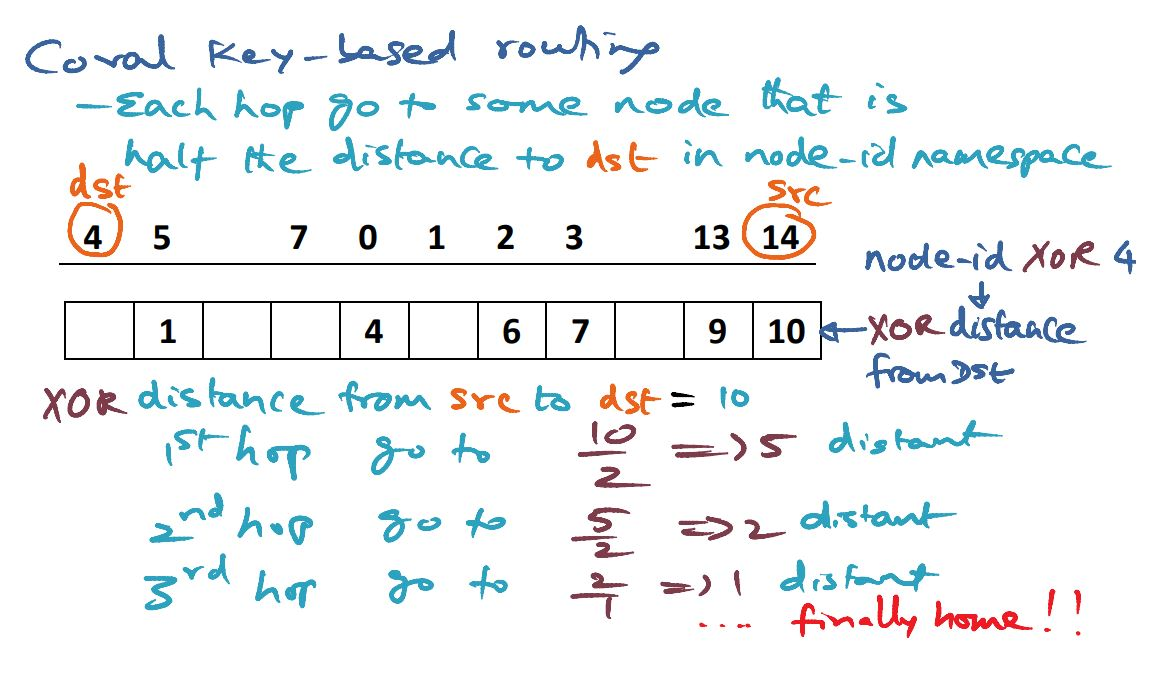 Coral Key-based routing
- Each hop go to some node that is
half the distance to dst in node-id namespace
dst src
4 5 7 0 1 2 3 13 14
node-id XOR 4
1 4 6 7 9 10
XOR distance
from Dst
XOR distance from src to dst = 10
1st hop go to 10/2 => 5 distant
2nd hop go to 5/2 => 2 distant
3rd hop go to 2/1 => 1 distant
.... finally home!!